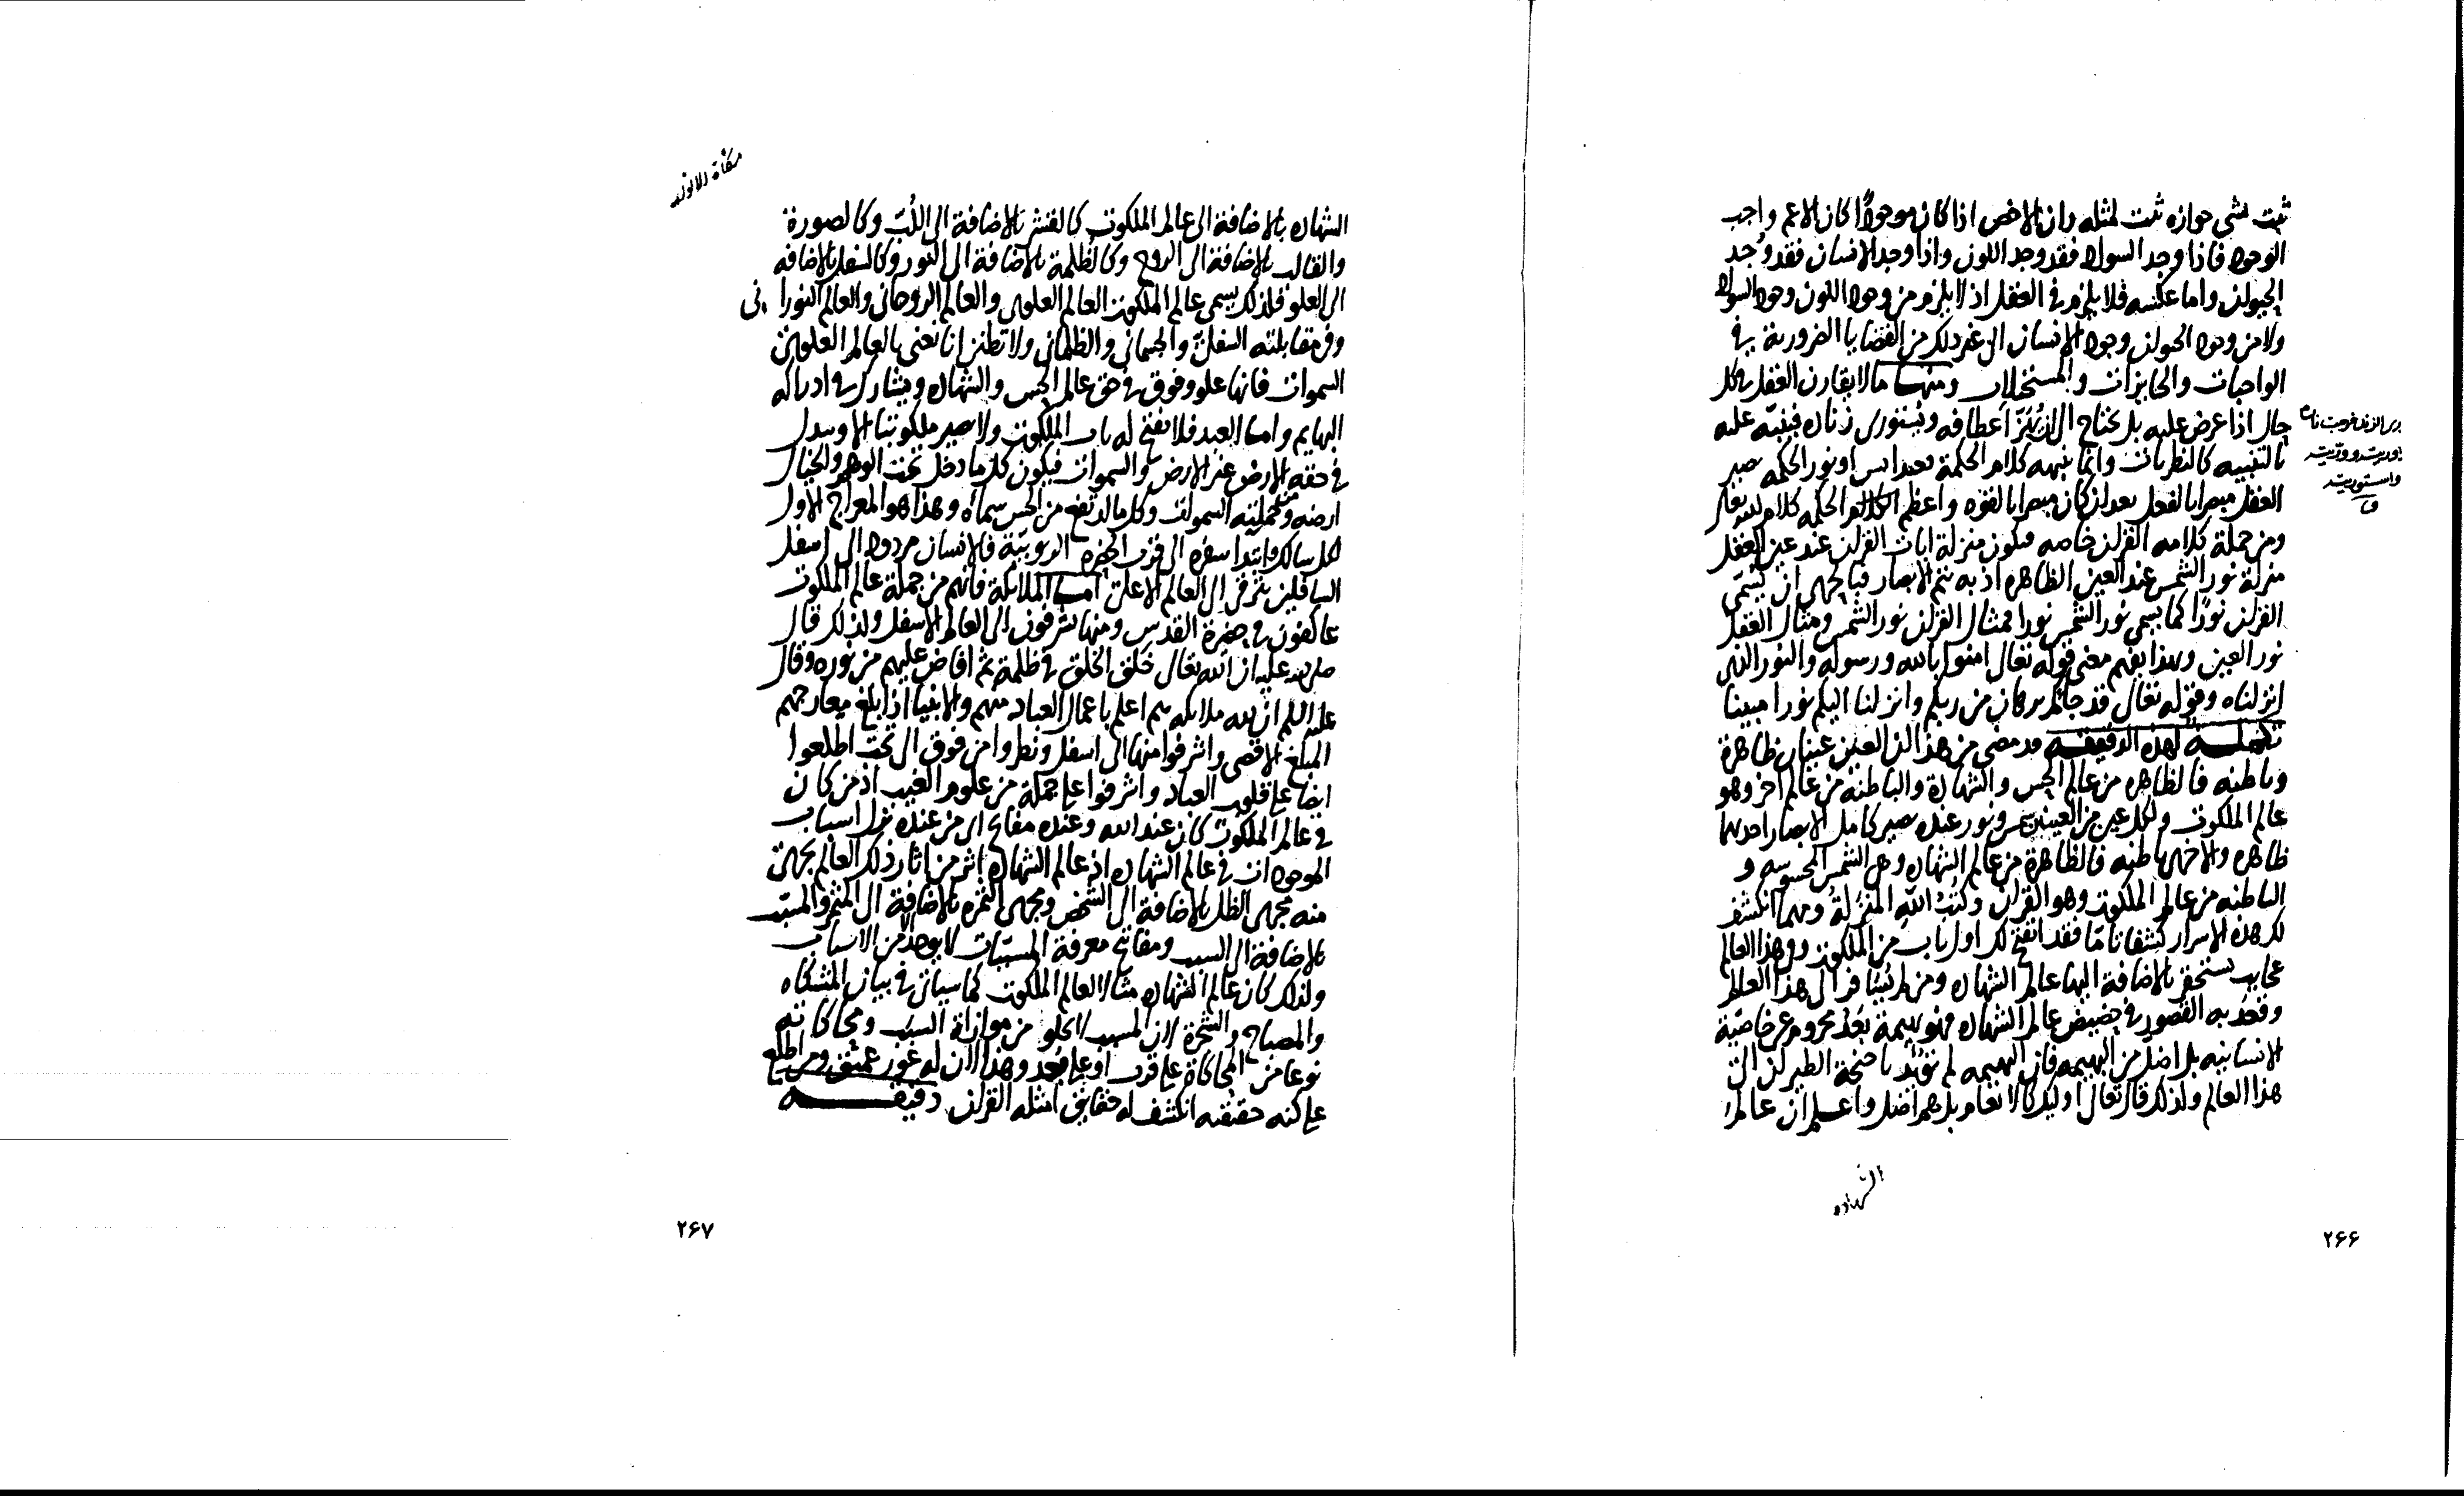 ثبت لشى جوازه ثبت لمثله وان الاخص اذا كان موجودًا كان الاعم واجب
الوجود فاذا وجد السواد فقد وجد اللون واذا وجد الانسان فقد وُجد
الحيوان واما عكسه فلا يلزم فى العقل اذ لا يلزم من وجود اللون وجود السواد
ولا من وجود الحيوان وجود الانسان الى غير ذلك من القضايا الضرورية فى
الواجبات والجايزات والمستحيلات ومنها ما لا يقارن العقل فى كل
حال اذا عرض عليه بل يحتاج الى ان يُهَزّ اعطافه ويُستورى زناده فينبّه عليه
بالتنبيه كالنظريات وانما ينبهه كلام الحكمة فعند اشراق نور الحكمه يصير
العقل مبصرا بالفعل بعد ان كان مبصرا بالقوه واعظم الكلام الحكمه كلام الله تعالى
ومن جملة كلامه القران خاصه فيكون منزلة ايات القران عند عين العقل
منزلة نور الشمس عند العين الظاهره اذ به يتم الابصار فبالحرى ان يسمّى
القران نورًا كما يسمى نور الشمس نورا فمثال القران نور الشمس ومثال العقل
نور العين وبهذا يفهم معنى قوله تعالى امنوا بالله ورسوله والنور الذى
انزلناه وقوله تعالى قد جاكم برهان من ربكم وانزلنا اليكم نورا مبينا
تكملـــة لهذه الدقيقـــه قد مضى من هذا ان العين عينان ظاهرة
وباطنه فالظاهره من عالم الحس والشهادة والباطنه من عالم اخر وهو
عالم الملكوت ولكل عين من العينين شمس ونور عنده يصير كامل الابصار احدهما
ظاهره والاخرى باطنه فالظاهرة من عالم الشهاده وهى الشمس المحسوسه و
الباطنه من عالم الملكوت وهو القران وكُتب الله المنزلة ومهما انكشف
لك هذه الاسرار كشفا تامّا فقد انفتح لك اول باب من الملكوت وفى هذا العالم
عجايب يستحقر بالاضافة اليها عالم الشهاده ومن لم يُسَافر الى هذا العالم
وقعد به القصور فى حضيض عالم الشهاده فهو بهيمة بَعد محروم عن خاصّية
الانسانيه بل اضل من البهيمه فان البهيمه لم تؤيّد باجنحة الطيران الى
هذا العالم ولذلك قال تعالى اوليك كالانعام بل هم اضل واعلم ان عالم
الشهاده
٢۶۶
مشكاة الانوار
الشهاده بالاضافة الى عالم الملكوت كالقشر بالاضافة الى اللُبّ وكالصورة
والقالب بالاضافة الى الروح وكالظلمة بالاضافة الى النور وكالسفل بالاضافه
الى العلو فلذلك يسمى عالم الملكوت العالم العلوى والعالم الروحانى والعالم النورانى
وفى مقابلته السفلى والجسمانى والظلمانى ولا تظنن انا نعنى بالعالم العلوى
السموات فانها علو وفوق فى حق عالم الحس والشهاده ويشارك فى ادراكه
البهايم واما العبد فلا يفتح له باب الملكوت ولا يصير ملكوتيا الا ويبدل
فى حقه الارض غير الارض والسموات فيكون كل ما دخل تحت الوهم والخيال
ارضه ومن جملته السموات وكل ما ارتفع من الحس سماه وهذا هو المعراج الاول
لكل سالك ابتدا سفره الى قرب الحضرة الربوبيّة فالانسان مردود الى اسفل
السافلين يترقى الى العالم الاعلى اما الملايكة فانهم من جملة عالم الملكوت
عاكفون فى حضرة القدس ومنها يشرفون الى العالم الاسفل ولذلك قال
صلى الله عليه ان الله تعالى خلق الخلق فى ظلمة ثم افاض عليهم من نوره وقال
عليه السلم ان لله ملايكه هم اعلم باعمال العباد منهم والانبيا اذا بلغ معارجهم
المبلغ الاقصى واشرفوا منها الى اسفل ونظروا من فوق الى تحت اطلعوا
ايضا على قلوب العباد واشرفوا على جملة من علوم الغيب اذ من كان
فى عالم الملكوت كان عند الله وعنده مفاتح اى من عنده تنزل اسباب
الموجودات فى عالم الشهاده اذ عالم الشهاده اثر من اثار ذلك العالم يجرى
منه مجرى الظل بالاضافة الى الشخص ومجرى الثمره بالاضافة الى المثمر والمسبّب
بالاضافة الى السبب ومفاتح معرفة المسبّبات لا يوخذ الا من الاسباب
ولذلك كان عالم الشهاده مثالا لعالم الملكوت كما سياتى فى بيان المشكاه
والمصباح والشجرة لان المسبب لا يخلو من موازاة السبب ومحاكاته
نوعا من المحاكاة على قرب او على بُعد وهذا الان له غور عميق ومن اطلع
على كنه حقيقته انكشف له حقايق امثله القران دقيقـــه
٢۶٧